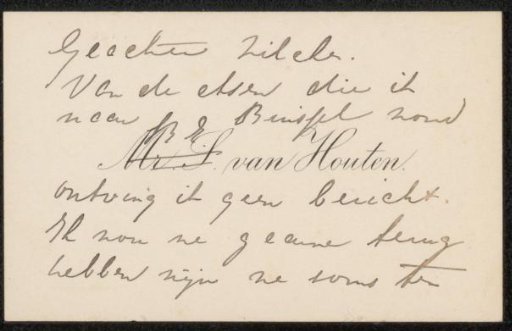 Geachte Zilcken.
Van de etsen die ik
naar Brussel zond
B E
Mr. S. van Houten.
ontving ik geen bericht.
Ik zou ze gaarne terug
hebben mijn ze soms ten